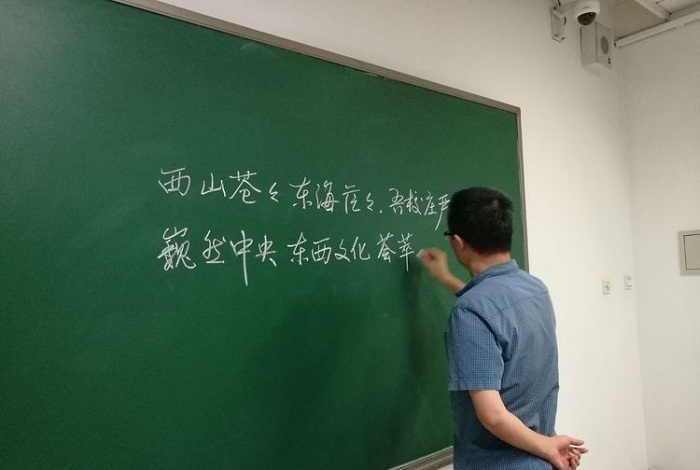 西山苍々东海茫々,吾校庄严
巍然中央 东西文化 荟萃